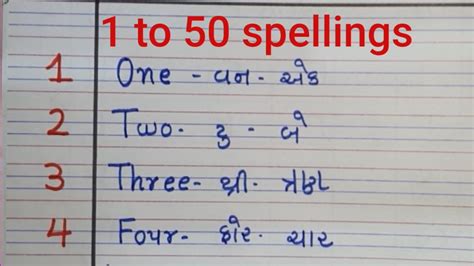 1 to 50 spellings
1 One - વન - એક
2 Two - ટુ - બે
3 Three - થ્રી - ત્રણ
4 Four - ફોર - ચાર